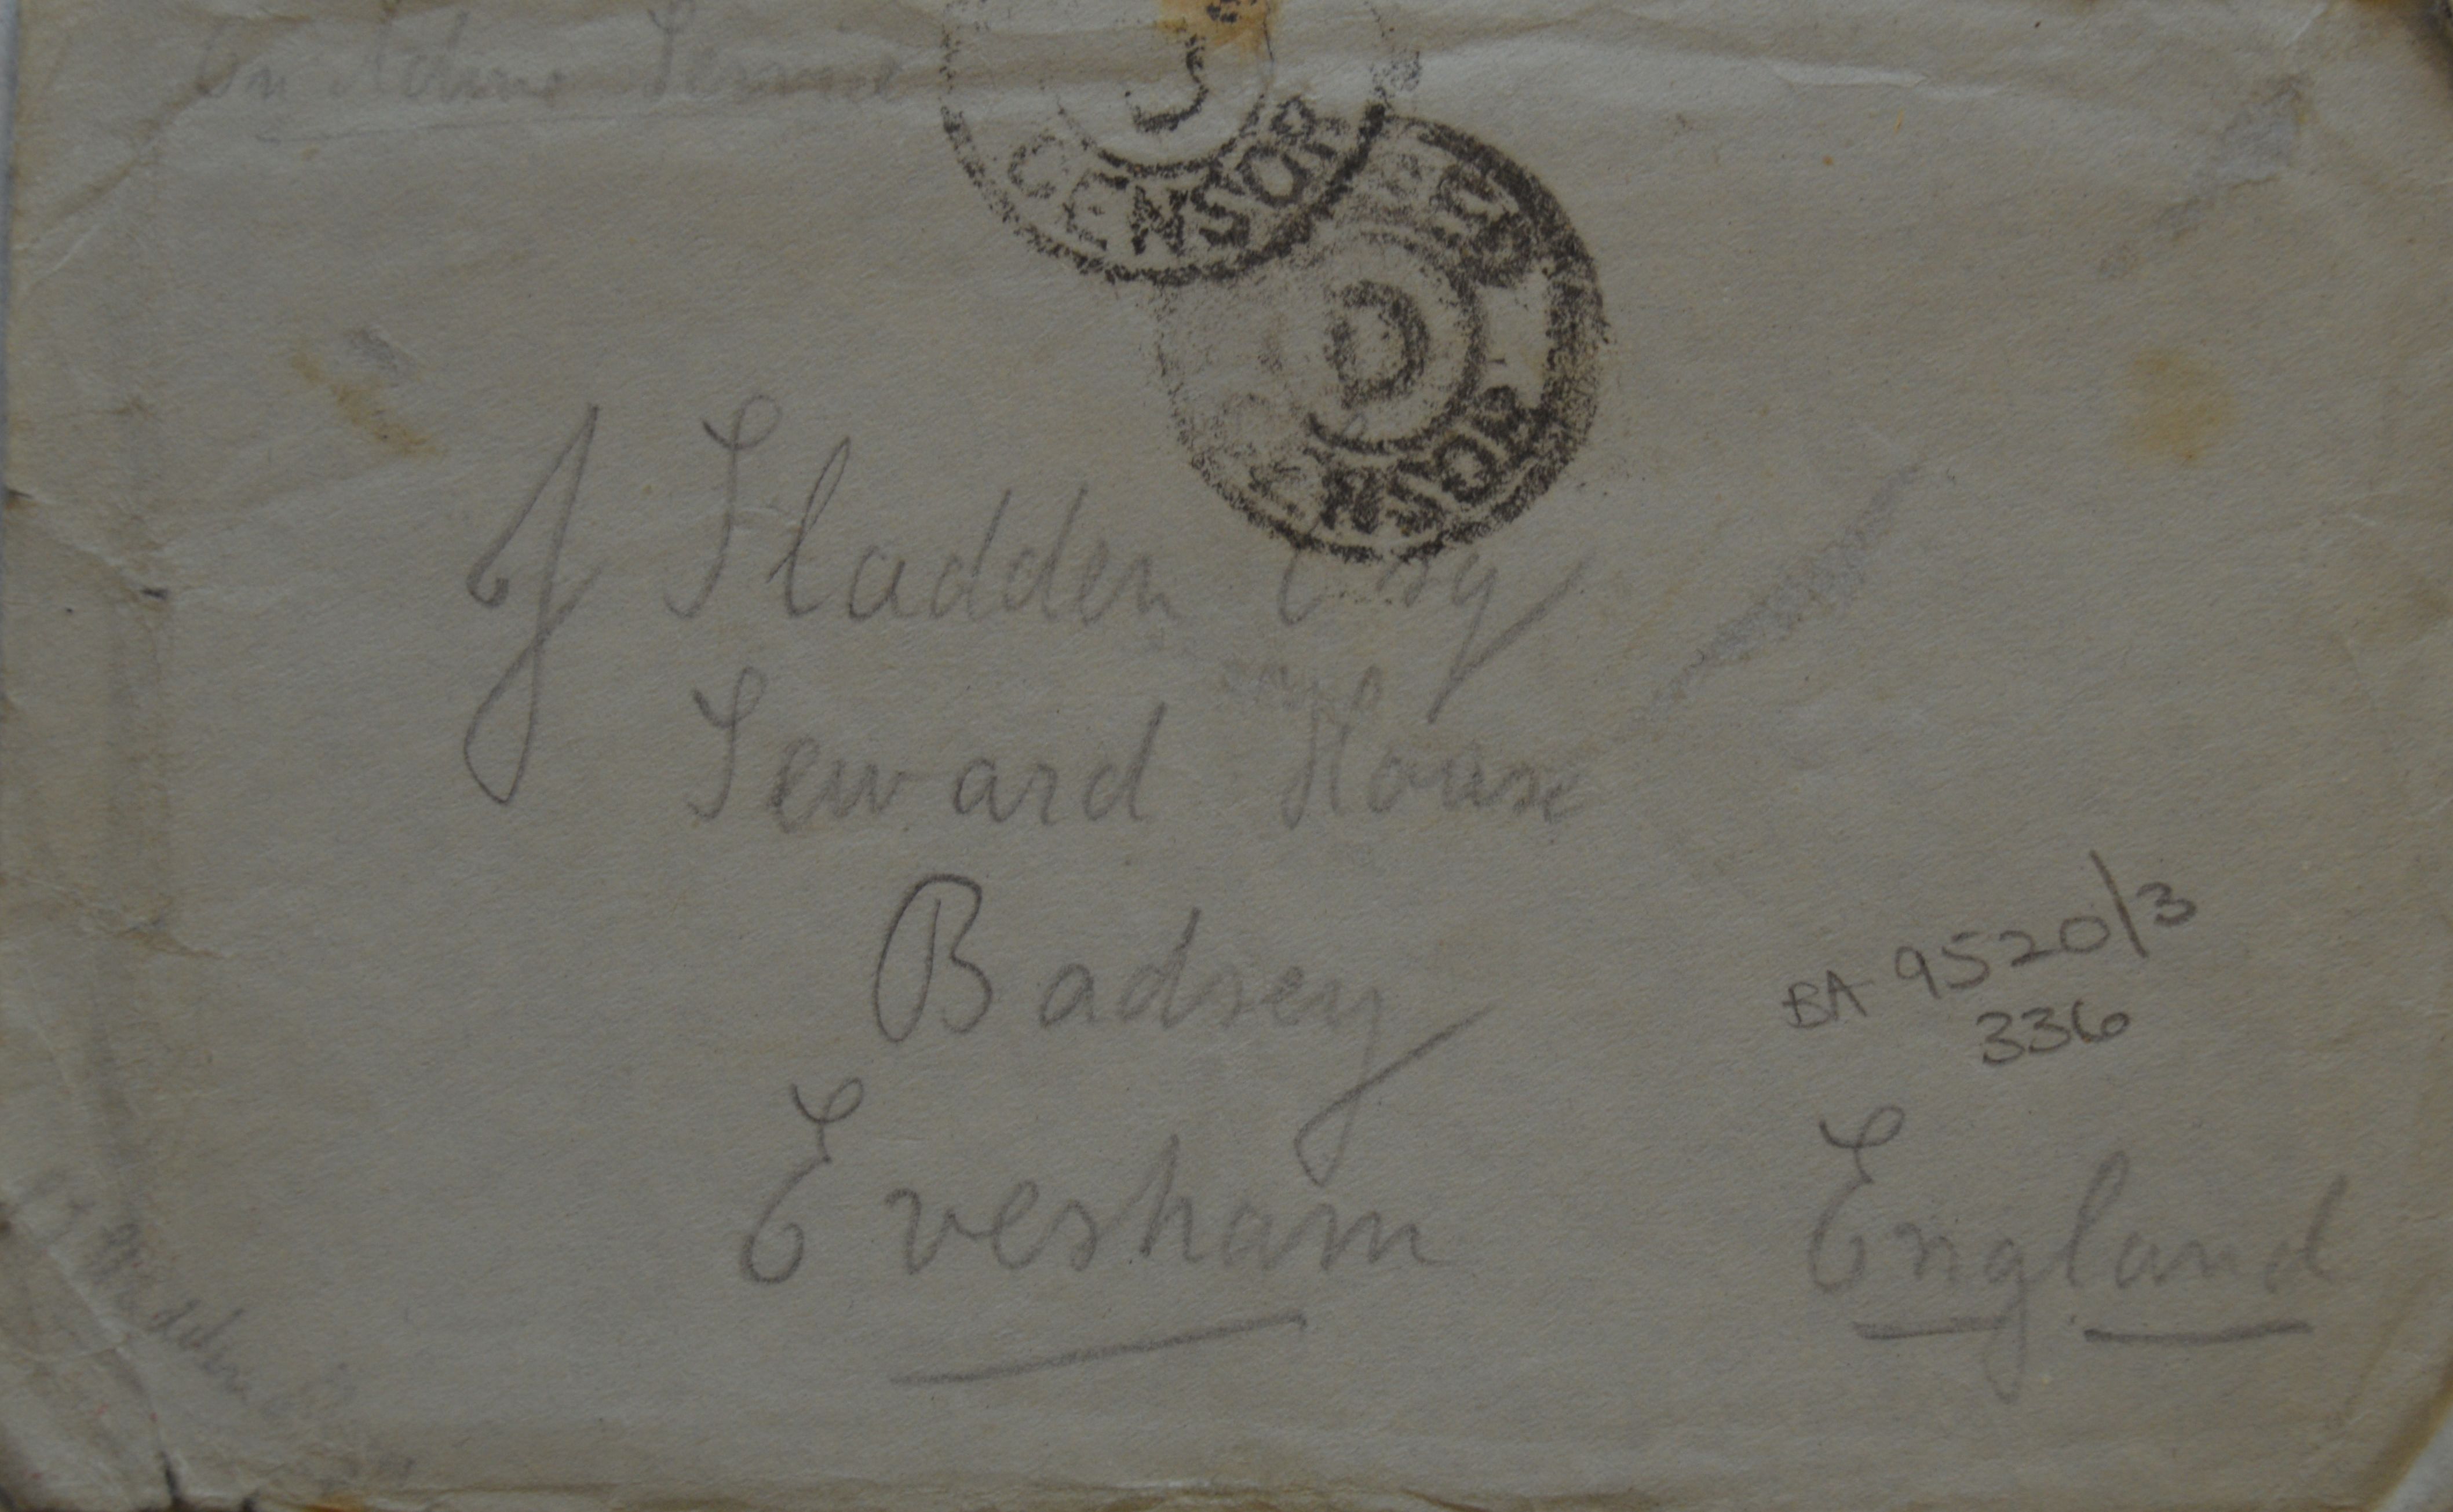 On Active Service
CENSOR
PASSED
D
CENSOR
J Sladden Esq
Seward House
Badsey
BA 9520/3
336
Evesham
England
Sladden